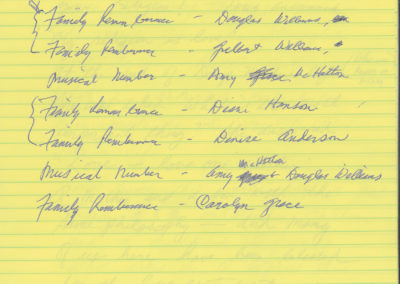 Family Remembrance - Douglas Williams,
Family Remembrance - Gilbert Williams,
Musical Number - Amy Grace McHatton
Family Remembrance - Diane Hanson
Family Remembrance - Denise Anderson
McHatton
Musical Number - Amy & Douglas Williams
Family Remembrance - Carolyn Grace